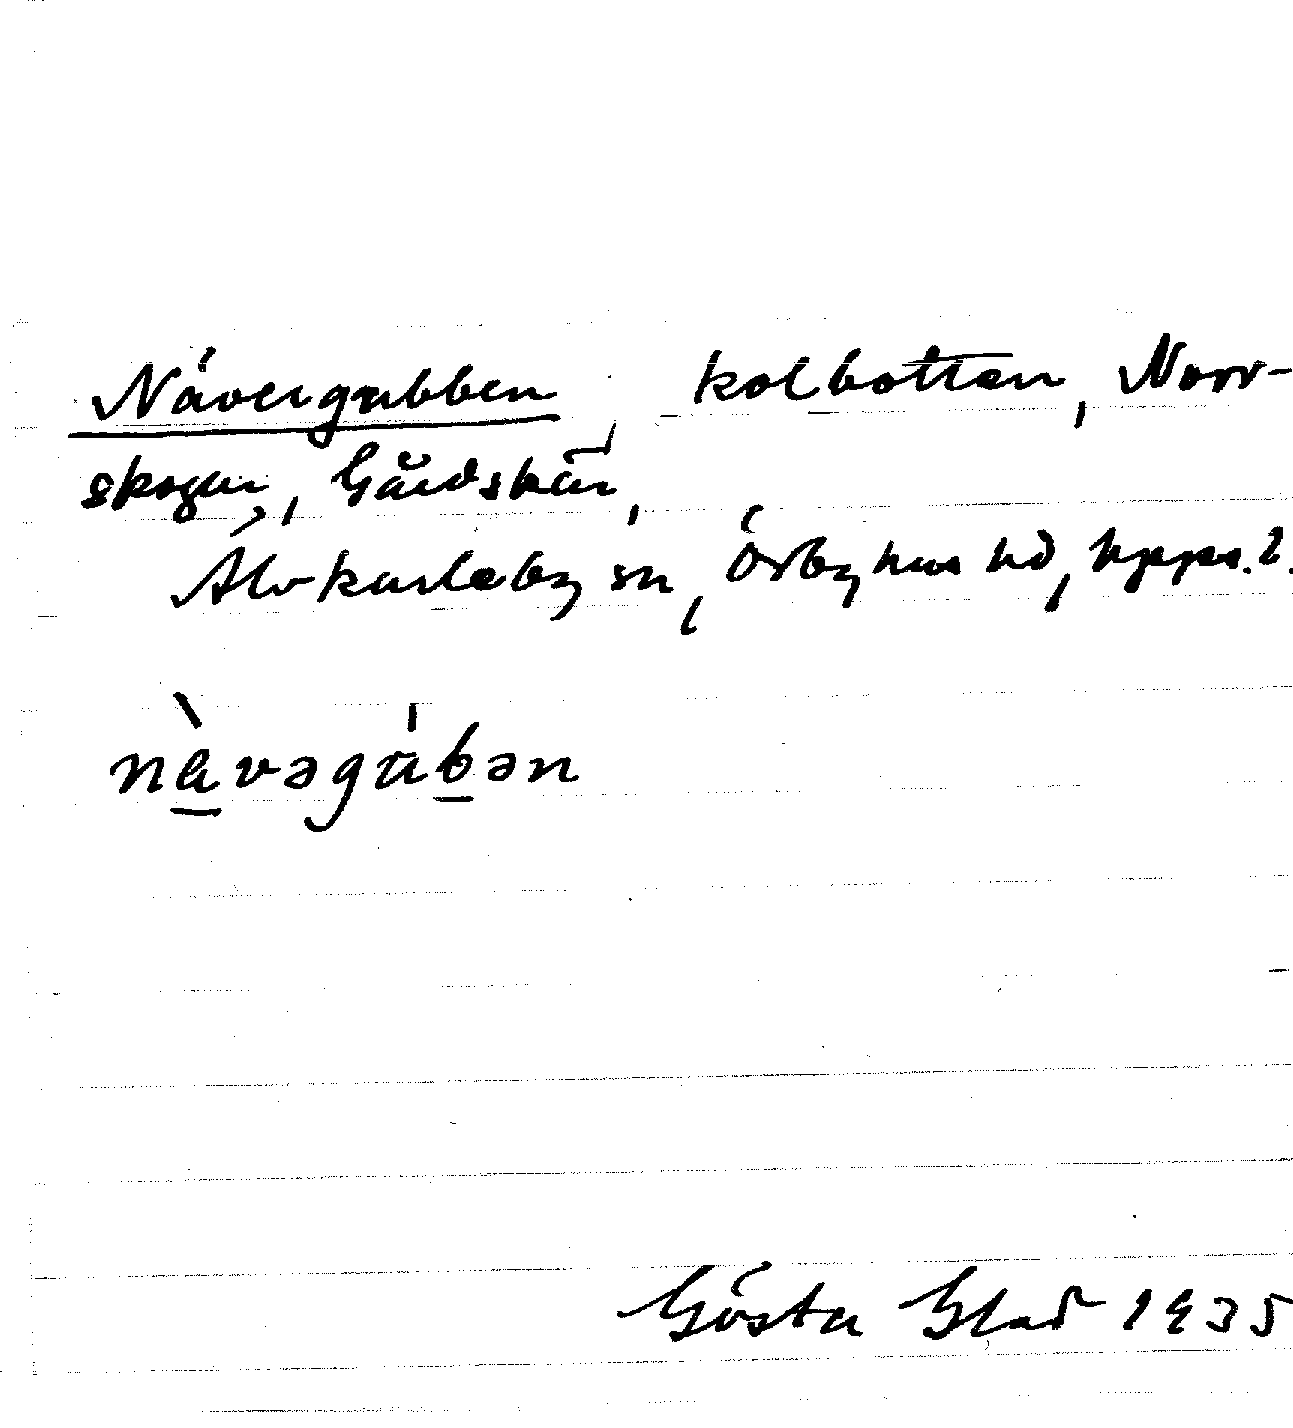 Nävergubben, kolbotten, Norr-
skogen, Gårdskär,
Älvkarleby sn, Örbyhus hd, Upps. l.
nàvəgúbən
Gösta Glad 1935